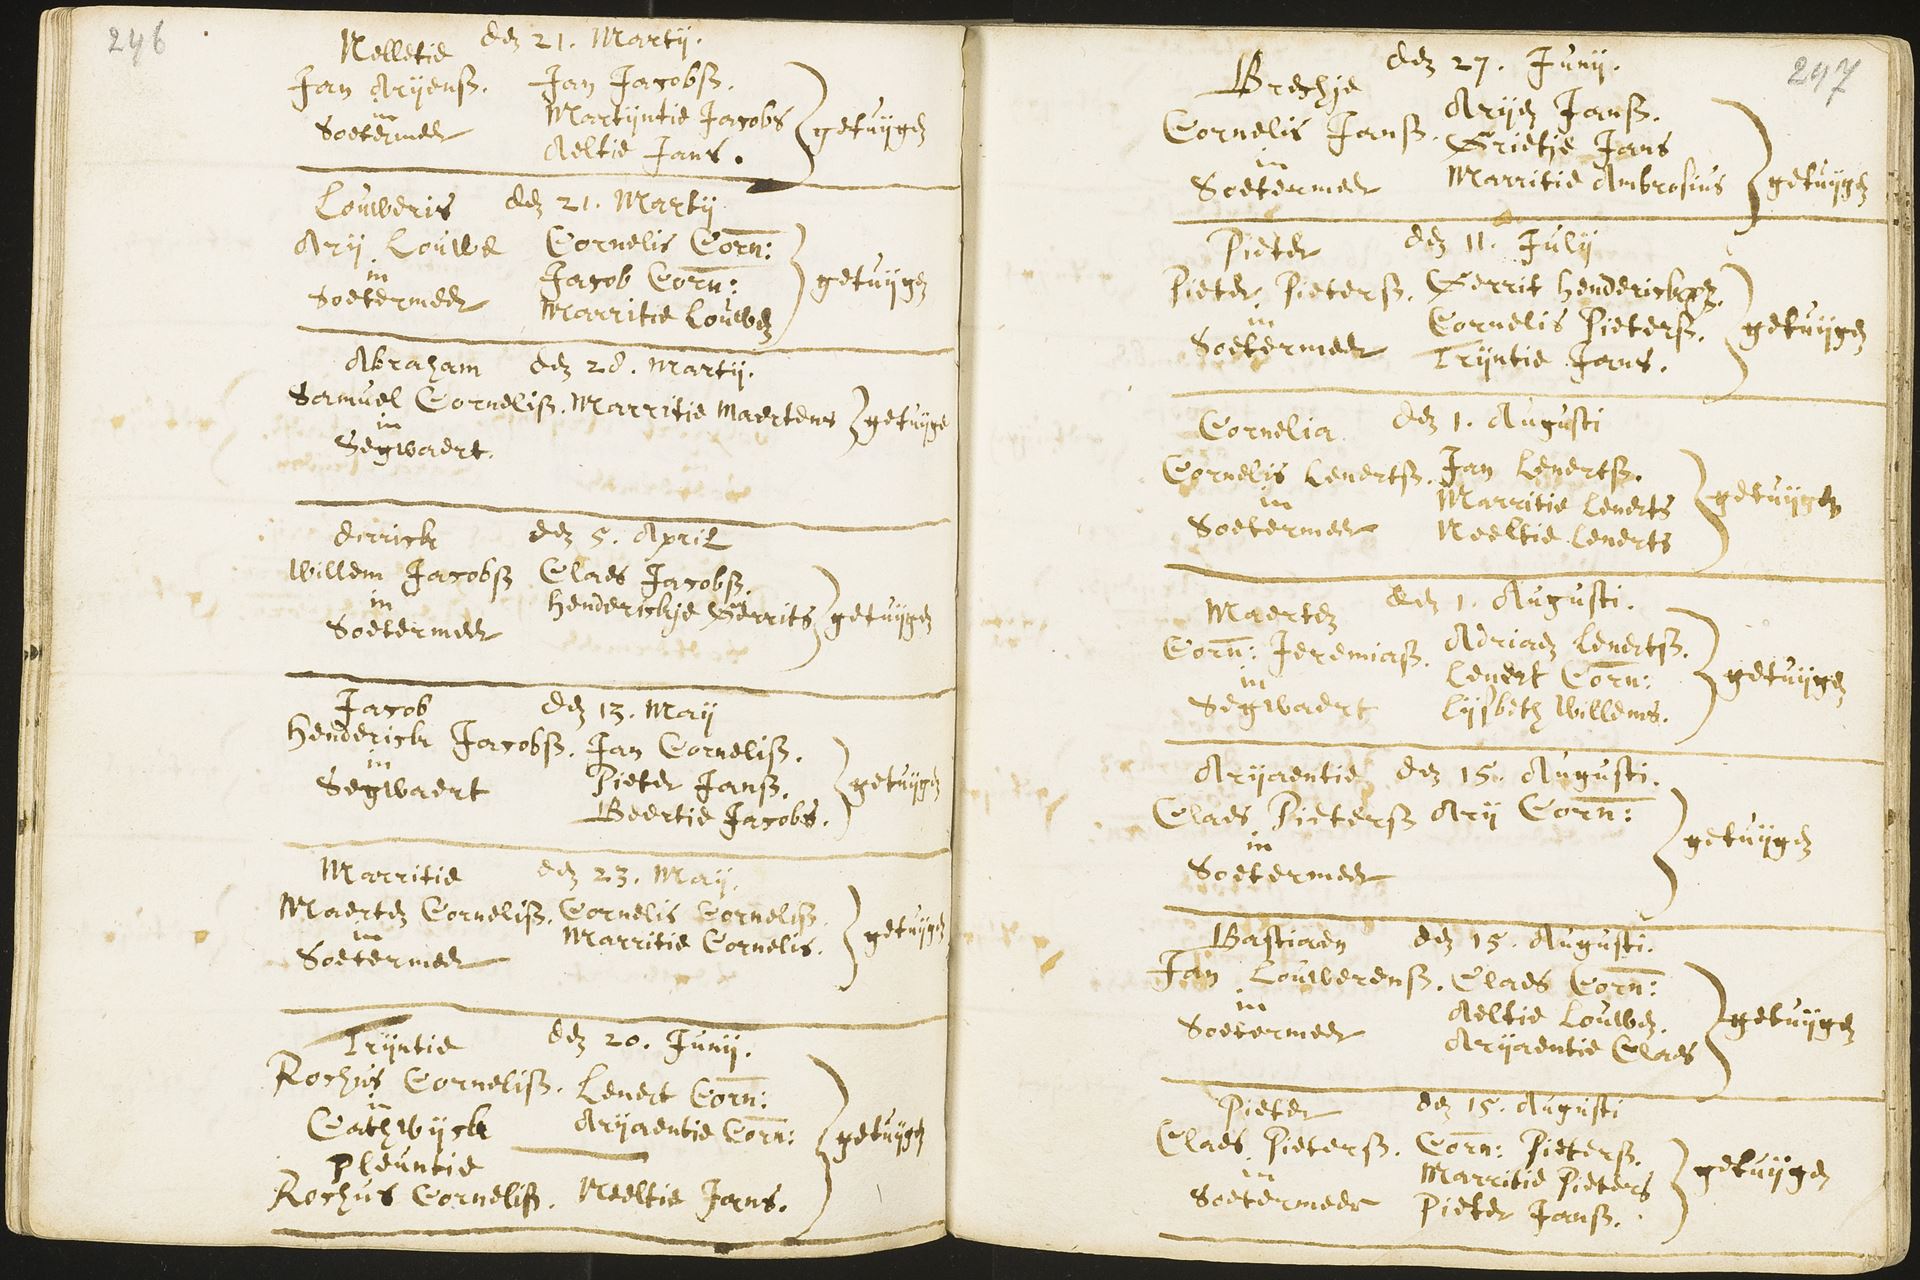 246
Nelletie den 21. Martij.
Jan Arijensz. Jan Jacobsz.
in Martijntie Jacobs
Soetermeer Aeltie Jans. getuijgen
Louweris den 21. Martij
Arij Louwe Cornelis Corn:
in Jacob Corn: getuijgen
Soetermeer Marritie Louwen
Abraham den 28. Martij.
Samuel Cornelisz. Marritie Maertens getuijge
in
Segwaert.
Dirrick den 5. April
Willem Jacobsz Claes Jacobsz.
in Henderickje Gerrits getuijgen
Soetermeer
Jacob den 13. Maij
Henderick Jacobsz. Jan Cornelisz.
in Pieter Jansz. getuijgen
Segwaert Beertie Jacobs.
Marritie den 23. Maij.
Maerten Cornelisz. Cornelis Cornelisz.
in Marritie Cornelis. getuijgen
Soetermeer
Trijntie den 20. Junij.
Rochus Cornelisz. Lenert Corn:
in Arijaentie Corn: getuijgen
Cathwijck
Pleuntie
Rochus Cornelisz. Neeltie Jans.
247
Brechje den 27. Junij.
Cornelis Jansz. Arijen Jansz.
in Grietje Jans
Soetermeer Marritie Ambrosius getuijgen
Pieter den 11. Julij
Pieter Pietersz. Gerrit Henderickszen.
in Cornelis Pietersz. getuijgen
Soetermeer Trijntie Jans.
Cornelia den 1. Augusti
Cornelis Lenertsz. Jan Lenertsz.
in Marritie Lenerts getuijgen
Soetermeer Neeltie Lenerts
Maerten den 1. Augusti.
Corn: Jeremiasz. Adriaen Lenertsz.
in Lenert Corn: getuijgen
Segwaert Lijsbeth Willems.
Arijaentie den 15. Augusti.
Claes Pietersz Arij Corn:
in getuijgen
Soetermeer
Bastiaen den 15. Augusti.
Jan Louwerensz. Claes Corn:
in Aeltie Louwen. getuijgen
Soetermeer Arijaentie Claes
Pieter den 15. Augusti
Claes Pietersz. Corn: Pietersz.
in Marritie Pieters getuijgen
Soetermeer Pieter Jansz.